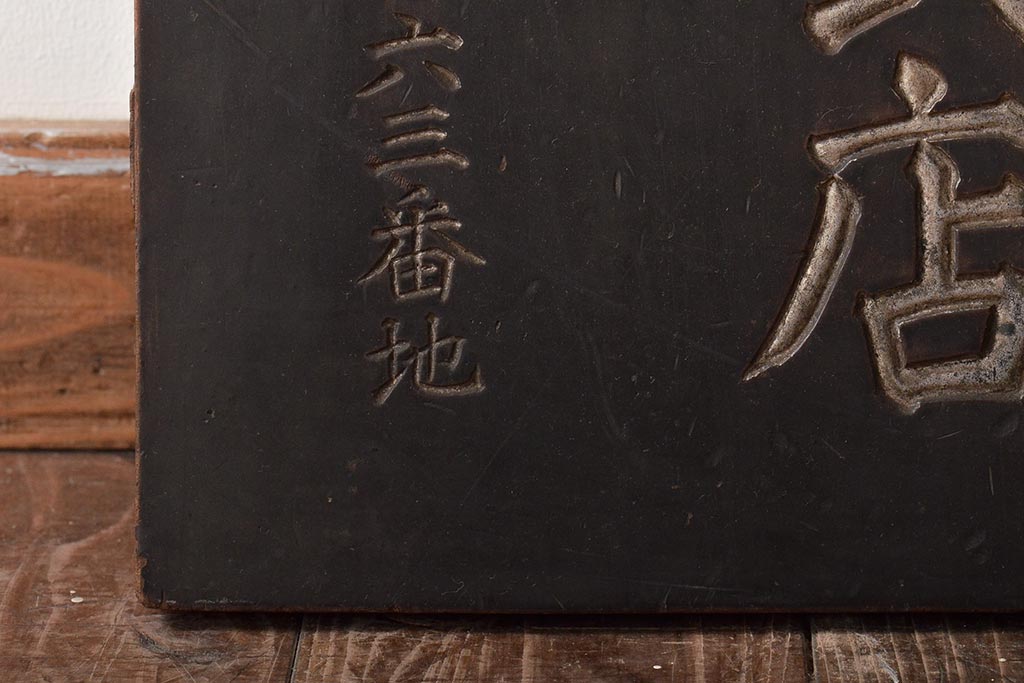 店
六三番地